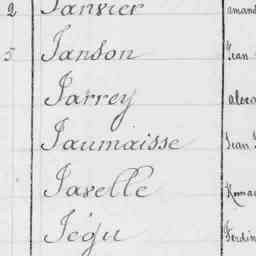 2 Janvier amand
5 Janson Jean
Jarrey alexa
Jaumaisse Jean
Javelle Roma
Jégu Ferdin